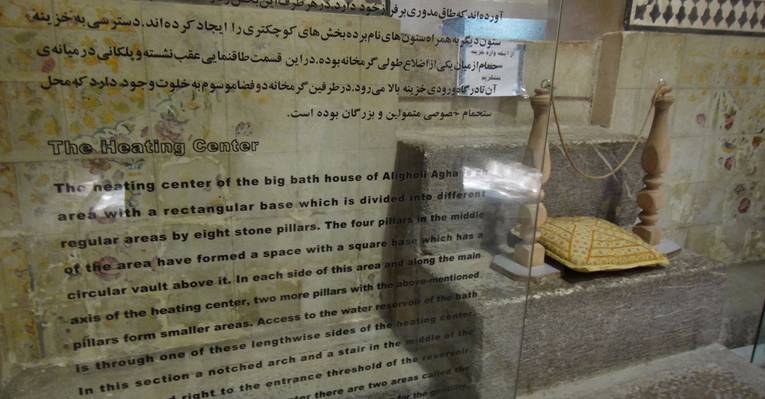 آورده‌اند که طاق مدوری بر فراز خود دارد. در هر طرف این بخش
ستون دیگر به همراه ستون های نام برده بخش های کوچکتری را ایجاد کرده‌اند. دسترسی به خزینه
حمام از میان یکی از اضلاع طولی گرمخانه بوده. در این قسمت طاقنمایی عقب نشسته و پلکانی در میانه‌ی
آن تا درگاه ورودی خزینه بالا می‌رود. در طرفین گرمخانه دو فضا موسوم به خلوت وجود دارد که محل
ستحمام خصوصی متمولین و بزرگان بوده است.
The Heating Center
The heating center of the big bath house of Aligholi Agha is an
area with a rectangular base which is divided into different
regular areas by eight stone pillars. The four pillars in the middle
of the area have formed a space with a square base which has a
circular vault above it. In each side of this area and along the main
axis of the heating center, two more pillars with the above-mentioned
pillars form smaller areas. Access to the water reservoir of the bath
is through one of these lengthwise sides of the heating center.
In this section a notched arch and a stair in the middle of the
right to the entrance threshold of the reservoir.
there are two areas called the